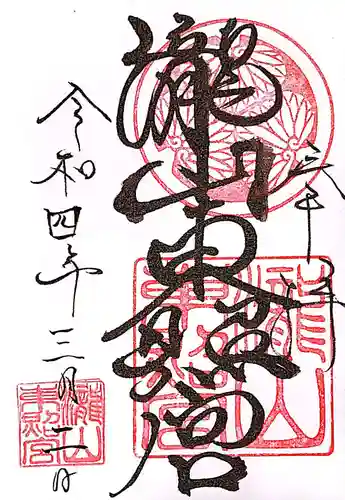 瀧山東照宮
令和四年三月
瀧山
東照宮
瀧山
東照宮